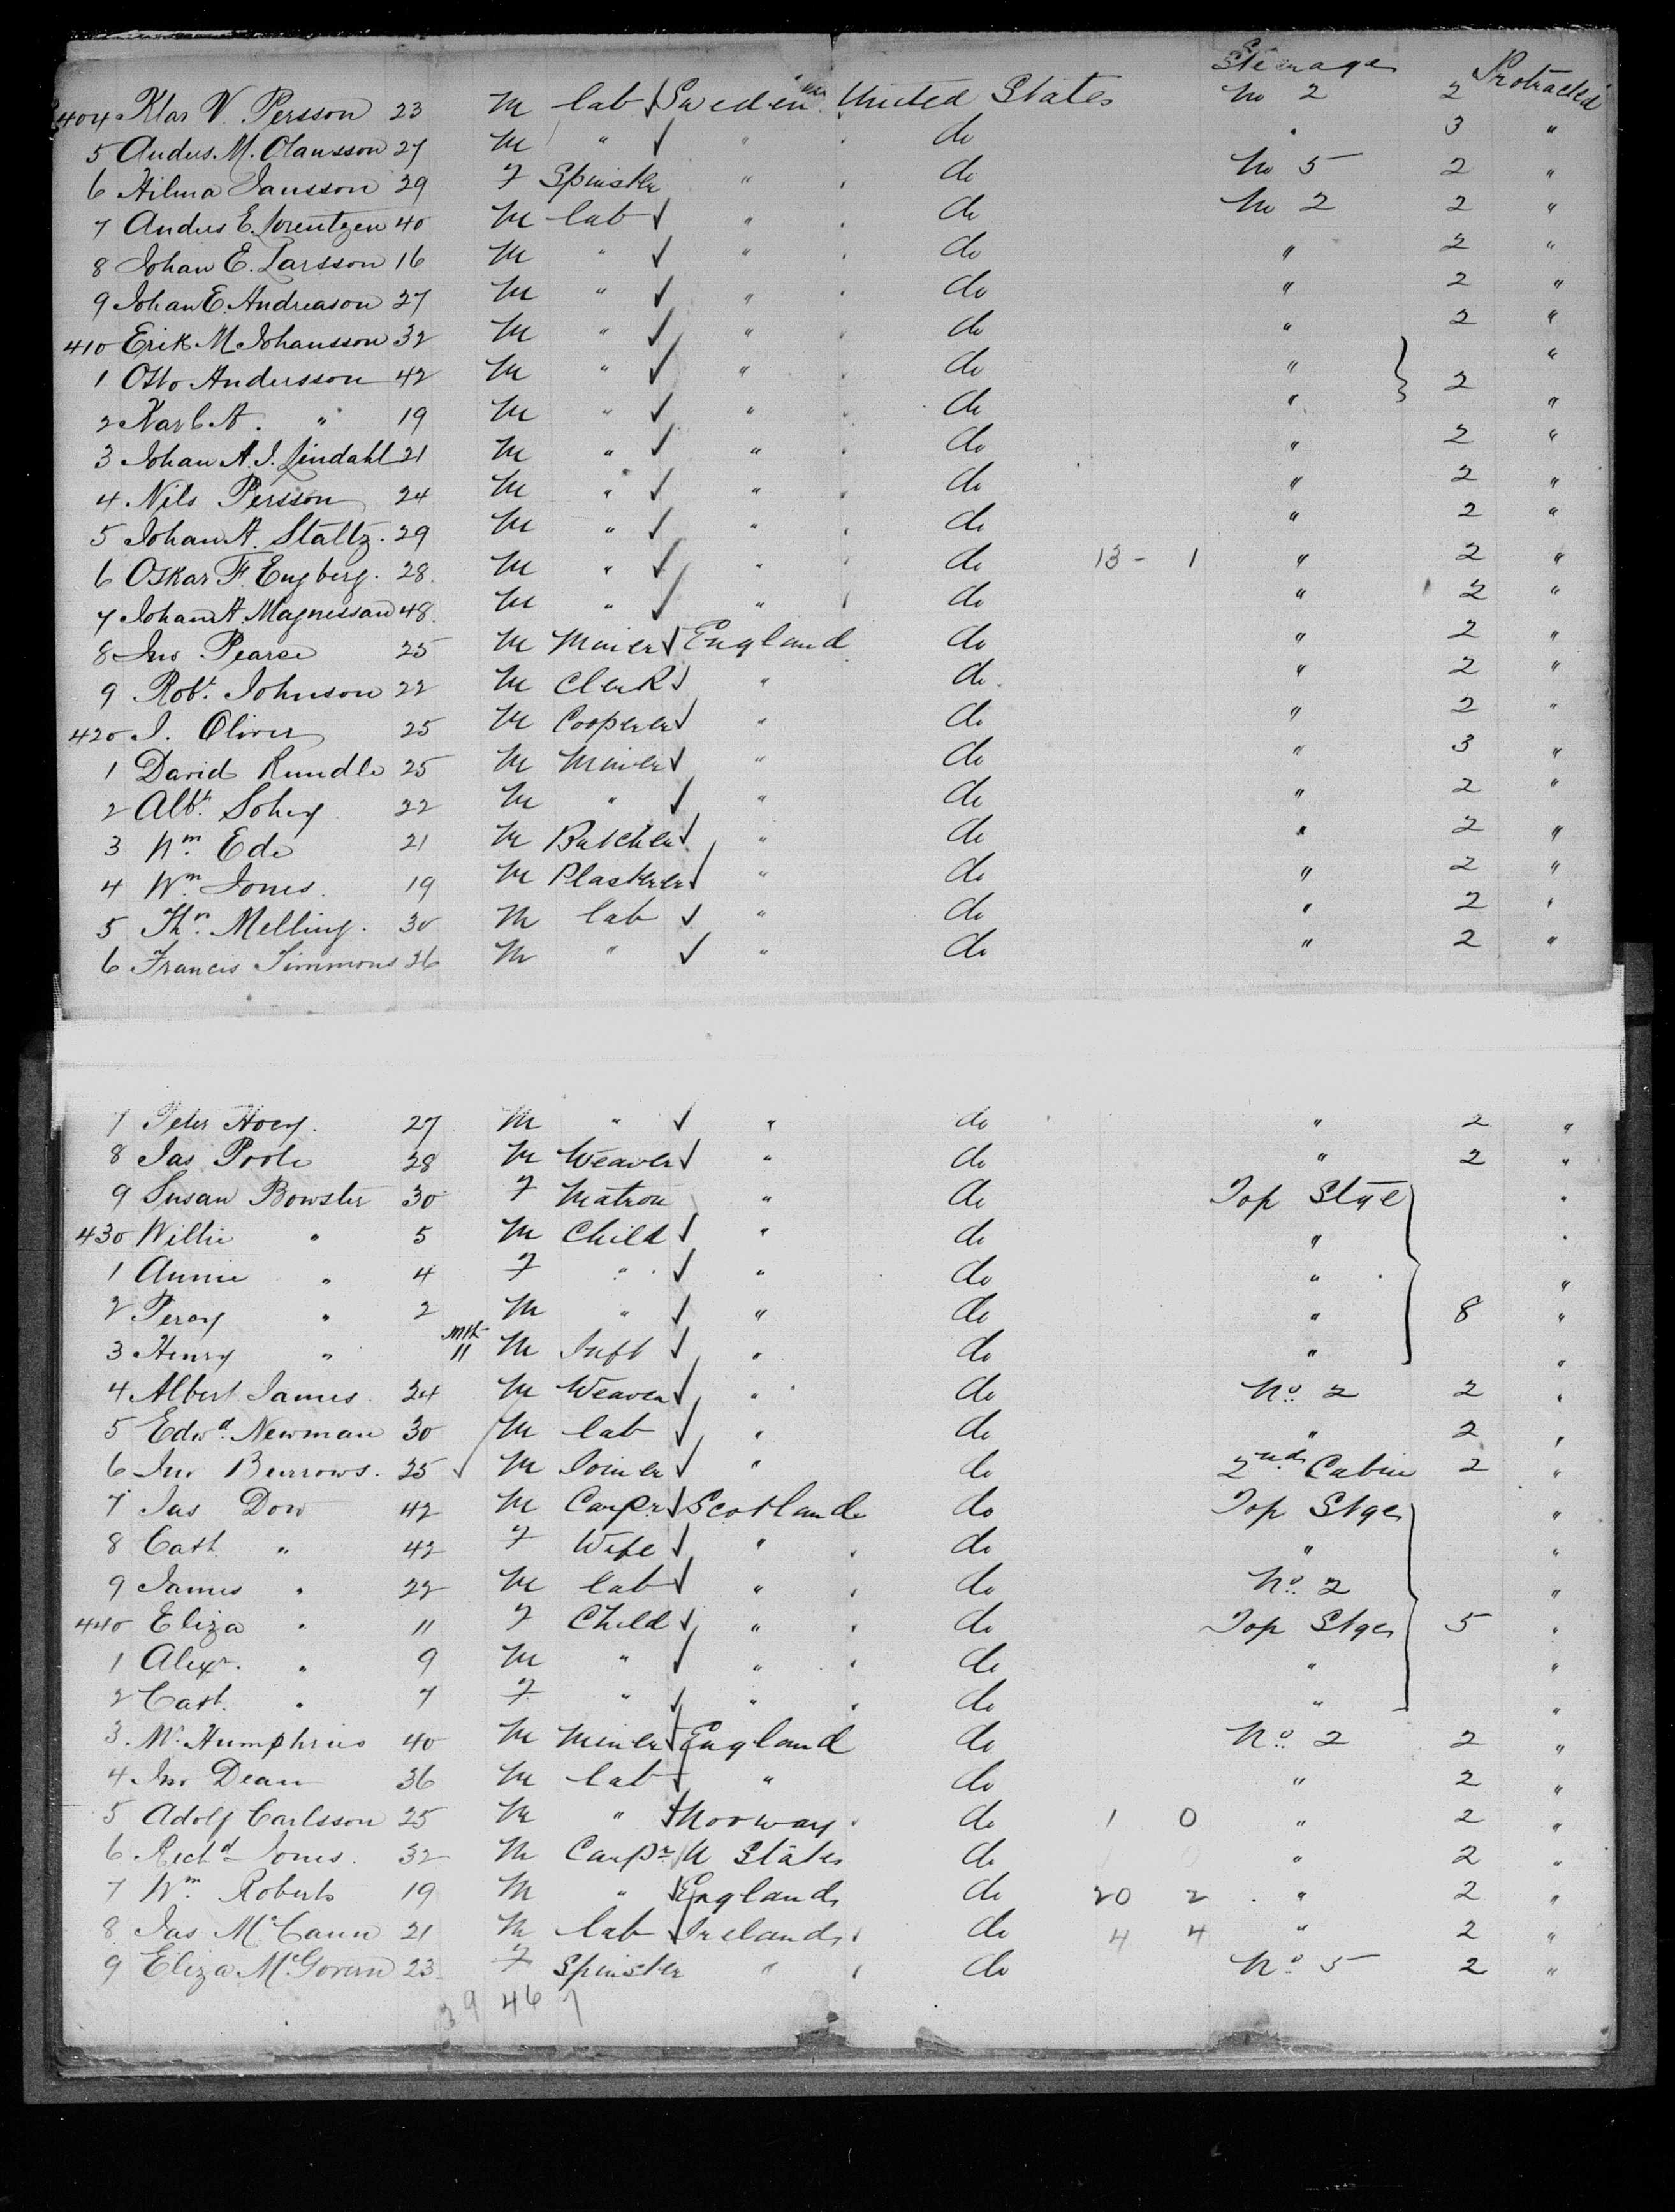 Steerage
404 Klas V. Persson 23 M lab Sweden United States No 2 2 Protracted
5 Andus. M. Olausson 27 M " " do " 3 "
6 Hilma Jansson 29 F Spinster " do No 5 2 "
7 Andus E. Lorentzen 40 M lab " do No 2 2 "
8 Johan E. Larsson 16 M " " do " 2 "
9 Johan E. Andreason 27 M " " do " 2 "
410 Erik M Johansson 32 M " " do " 2 "
1 Otto Andersson 42 M " " do " "
2 Karl A. " 19 M " " do " 2 "
3 Johan A. J. Lindahl 21 M " " do " 2 "
4 Nils Persson 24 M " " do " 2 "
5 Johan A. Staltz. 29 M " " do " 2 "
6 Oskar F. Engberg. 28. M " " do 13 - 1 " 2 "
7 Johan A. Magnessan 48. M " " do " 2 "
8 Jno Pearse 25 M Miner England do " 2 "
9 Robt. Johnson 22 M Clerk " do. " 2 "
420 J. Oliver 25 M Cooperer " do " 2 "
1 David Rundle 25 M Miner " do " 3 "
2 Albt. Sohey 22 M " " do " 2 "
3 Wm. Ede 21 M Butcher " do " 2 "
4 Wm. Jones. 19 M Plasterer " do " 2 "
5 Ths. Melling. 30 M lab " do " 2 "
6 Francis Timmons 26 M " " do " 2 "
7 Peter Hoey. 27 M " " do " 2 "
8 Jas Poole 28 M Weaver " do " 2 "
9 Susan Bowster 30 F Matron " do Top Stge "
430 Willie " 5 M Child " do " "
1 Annie " 4 F " " do " "
2 Percy " 2 M " " do " 8 "
3 Henry " Mth 11 M Inft " do " "
4 Albert James. 24 M Weaver " do No. 2 2 "
5 Edwd. Newman 30 M lab " do " 2 "
6 Jno Burrows. 25 M Joiner " do 2nd Cabin 2 "
7 Jas Dow 42 M Carpr Scotland do Top Stge "
8 Cath " 42 F Wife " do " "
9 James " 22 M lab " do No. 2 "
440 Eliza " 11 F Child " do Top Stge 5 "
1 Alexr. " 9 M " " do " "
2 Cath. " 7 F " " do " "
3 W. Humphries 40 M Miner England do No. 2 2 "
4 Jno Dean 36 M lab " do " 2 "
5 Adolf Carlsson 25 M " Norway do 1 0 " 2 "
6 Richd Jones. 32 M Carpr U States do " 2 "
7 Wm. Roberts 19 M " England do 20 2 " 2 "
8 Jas McCann 21 M lab Ireland do 4 4 " 2 "
9 Eliza McGovern 23 F Spinster " do No 5 2 "
39 46 7